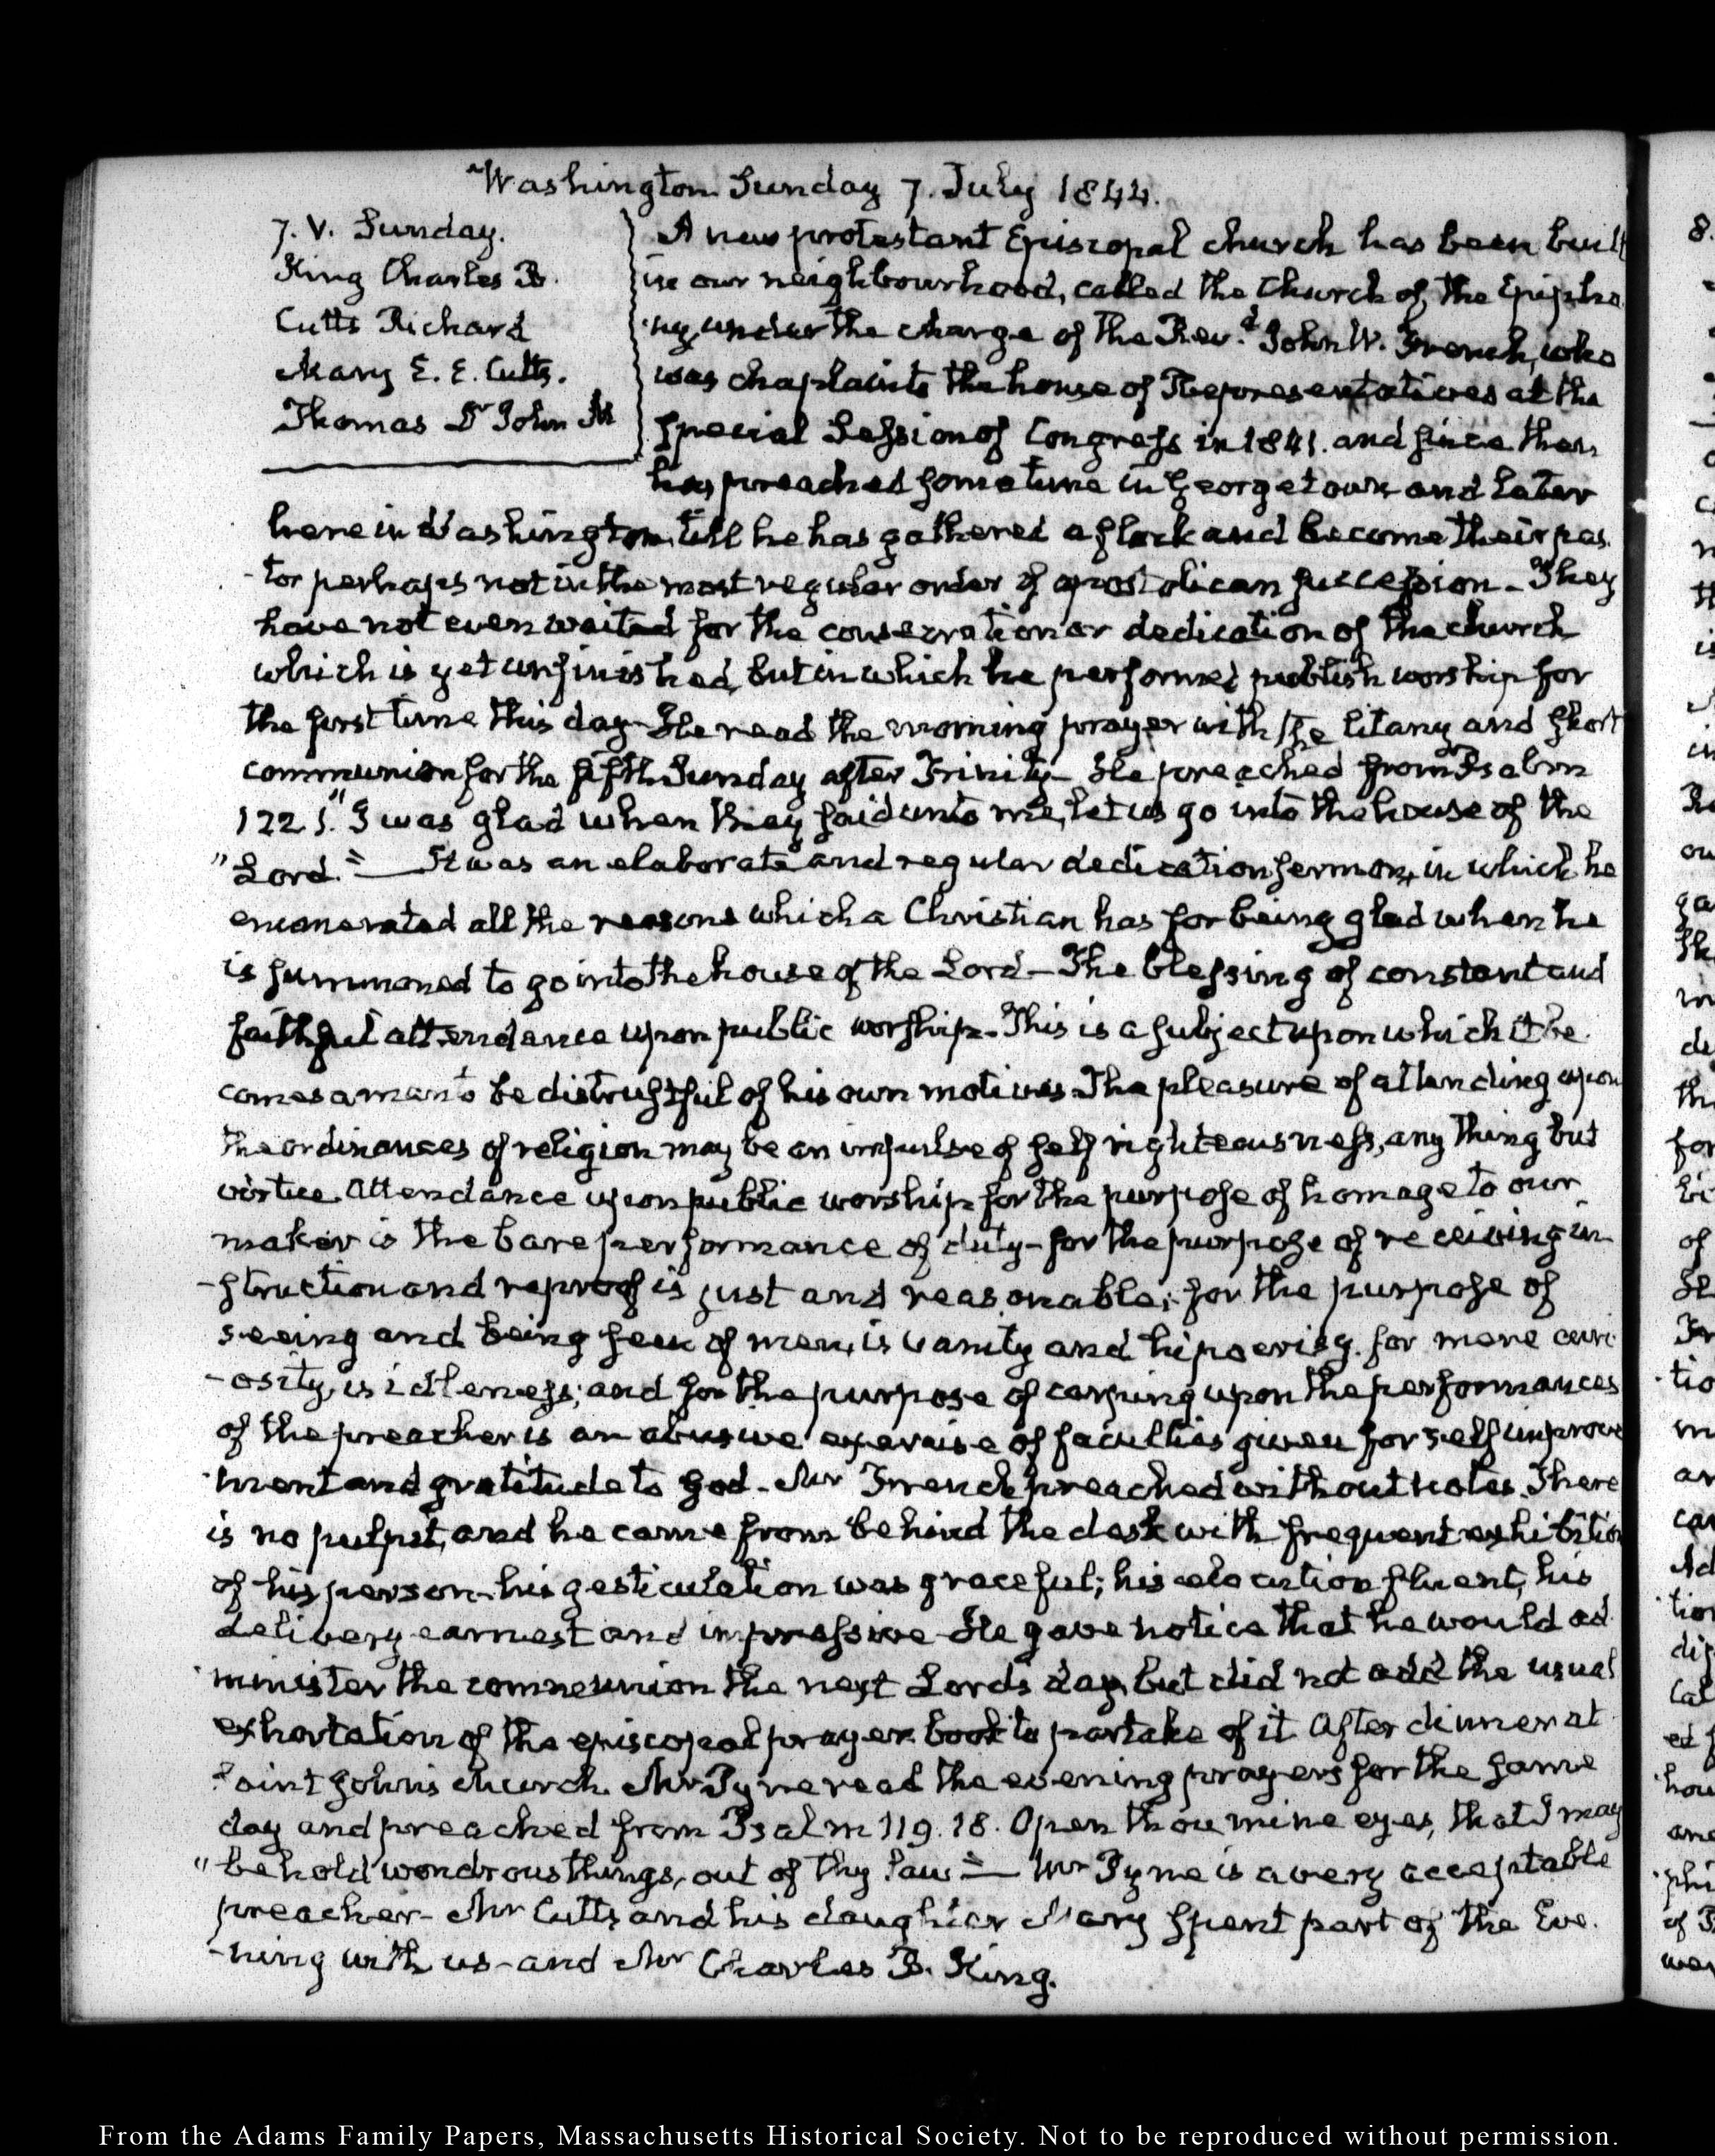 Washington Sunday 7. July 1844.
7. V. Sunday.
King Charles B.
Cutts Richard
Mary E. E. Cutts.
Thomas Dr John M
A new protestant Episcopal church has been built
in our neighbourhood, called the Church of the Epipha
ny under the charge of the Revd. John W. French, who
was chaplain to the house of Representatives at the
special Session of Congress in 1841. and since then
has preached some time in Georgetown and later
here in Washington, till he has gathered a flock and become their pas
-tor perhaps not in the most regular order of apostolican succession - They
have not even waited for the consecration or dedication of the church
which is yet unfinished, but in which he performed publish worship for
the first time this day - He read the morning prayer with the litany and short
communion for the fifth Sunday after Trinity - He preached from Psalm
122 1. "I was glad when they said unto me, let us go into the house of the
"Lord." — It was an elaborate and regular dedication sermon, in which he
enumerated all the reasons which a Christian has for being glad when he
is summoned to go into the house of the Lord - The blessing of constant and
faithful attendance upon public worship - This is a subject upon which it be
comes a man to be distrustful of his own motives. The pleasure of attending upon
the ordinances of religion may be an impulse of self righteousness, any thing but
virtue. Attendance upon public worship for the purpose of homage to our
maker is the bare performance of duty - for the purpose of receiving in
-struction and reproof is just and reasonable; for the purpose of
seeing and being seen of men, is vanity and hipocrisy. for mere curi
-osity, is idleness; and for the purpose of carping upon the performances
of the preacher is an abusive exercise of faculties given for self improve
ment and gratitude to God - Mr French preached without notes. There
is no pulpit, and he came from behind the desk with frequent exhibition
of his person - his gesticulation was graceful; his elocution fluent, his
delivery earnest and impressive - He gave notice that he would ad
minister the communion the next Lord's day, but did not add the usual
exhortation of the episcopal prayer book to partake of it After dinner at
Saint John's church. Mr Tyne read the evening prayers for the same
day and preached from Psalm 119. 18. Open thou mine eyes, that I may
"behold wondrous things, out of thy law" — Mr Tyne is a very acceptable
preacher - Mr Cutts and his daughter Mary spent part of the Eve.
-ning with us - and Mr Charles B. King.
From the Adams Family Papers, Massachusetts Historical Society. Not to be reproduced without permission.